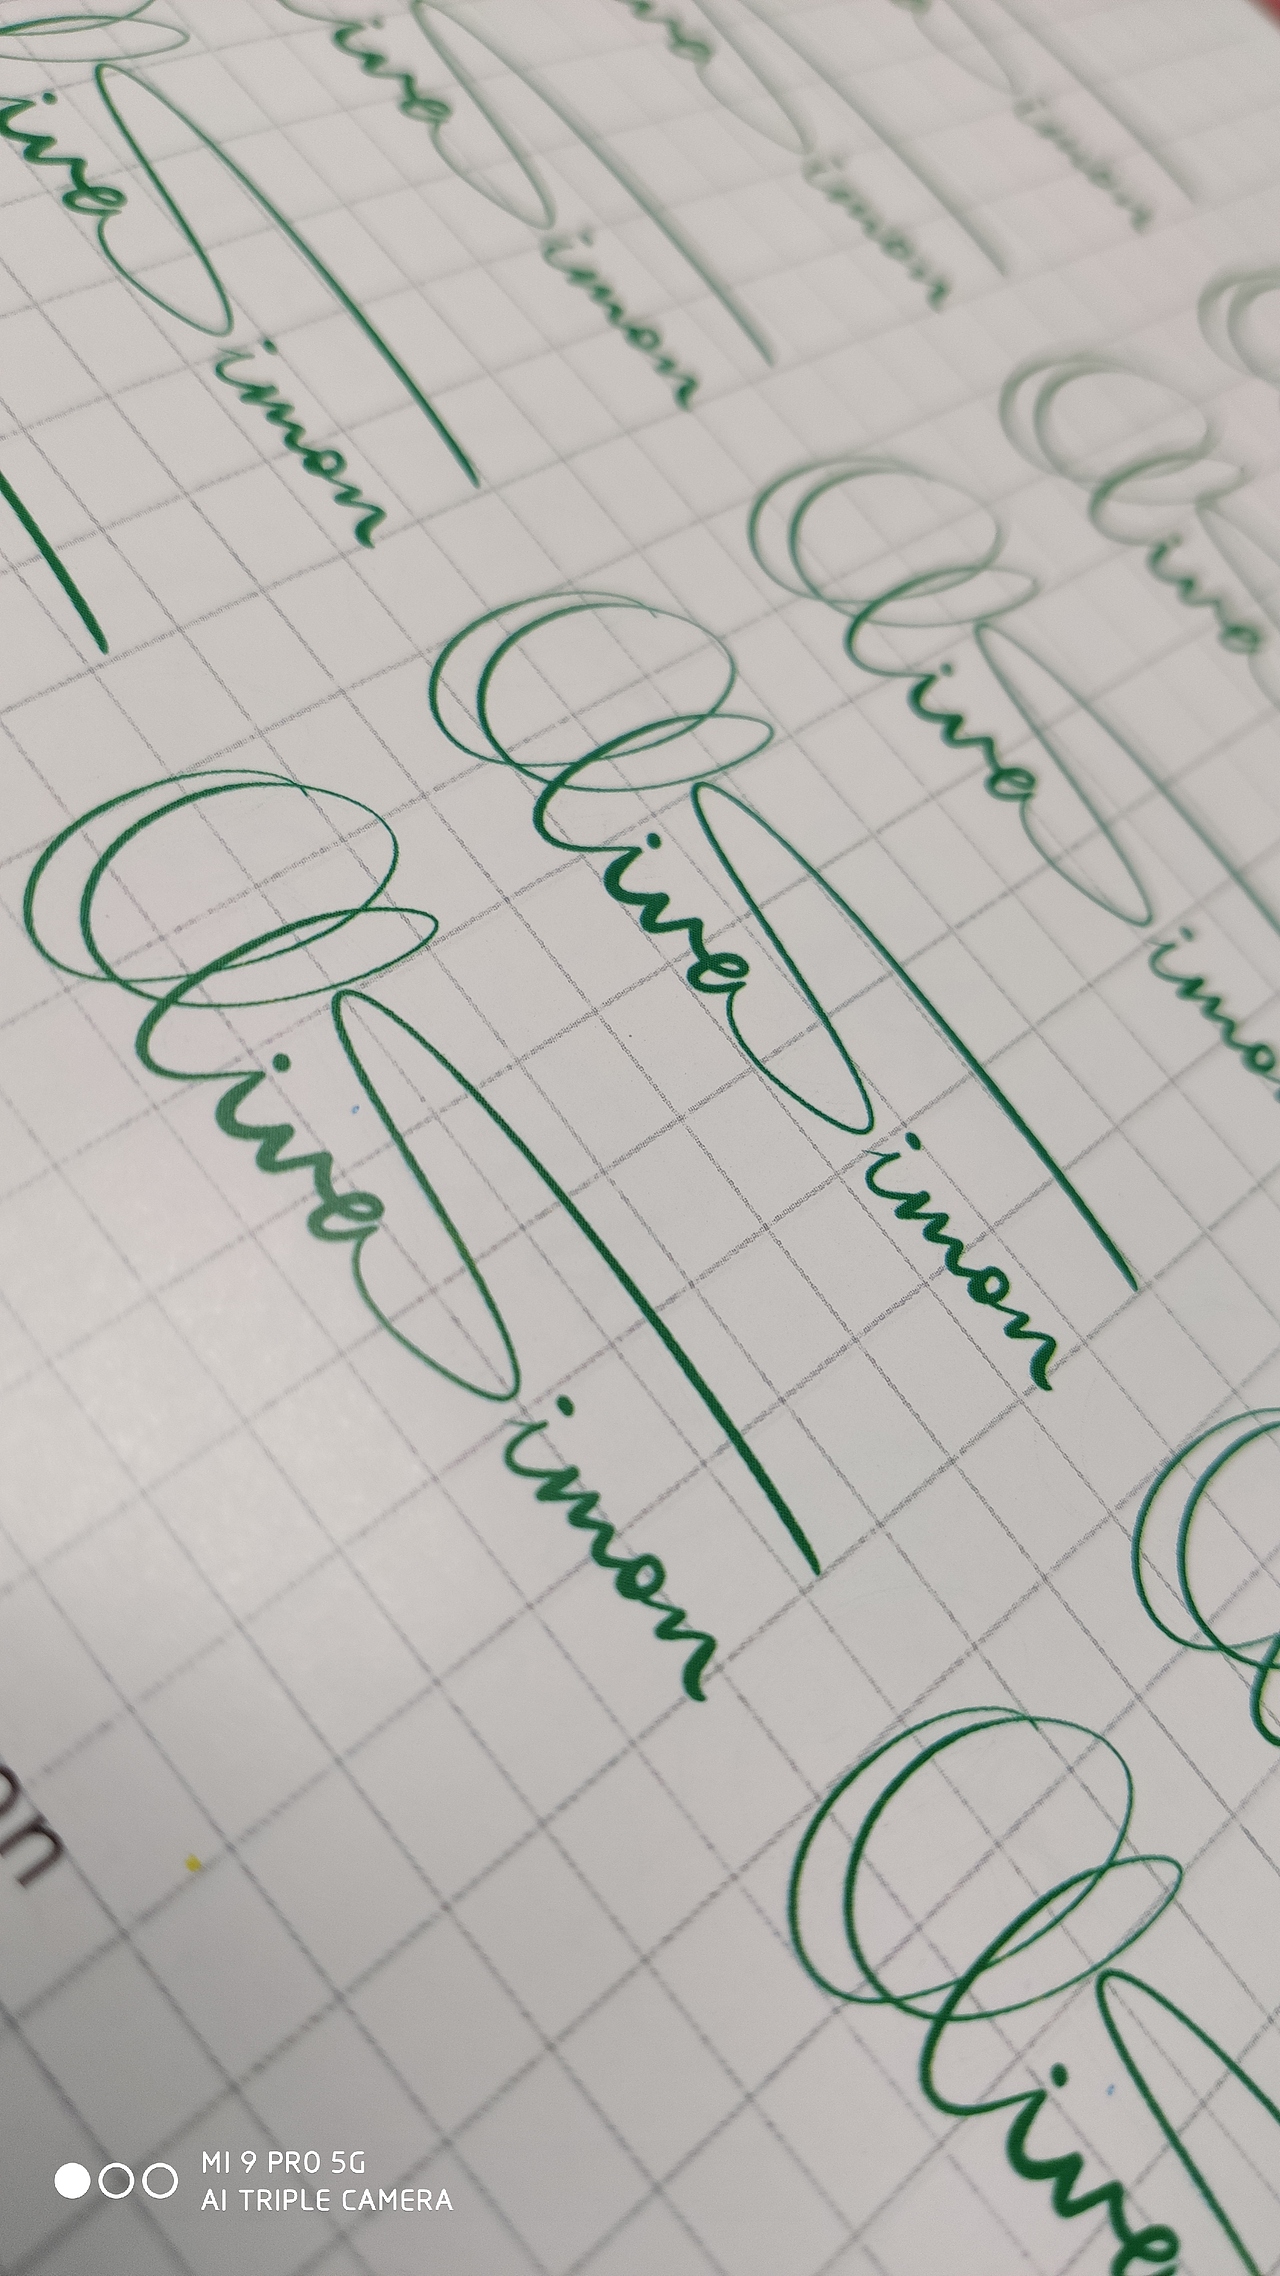 live Simon
live Simon
ive Simon
Simon
Olive Simon
Olive Simon
Olive Simon
Olive
Olive
on
MI 9 PRO 5G
AI TRIPLE CAMERA